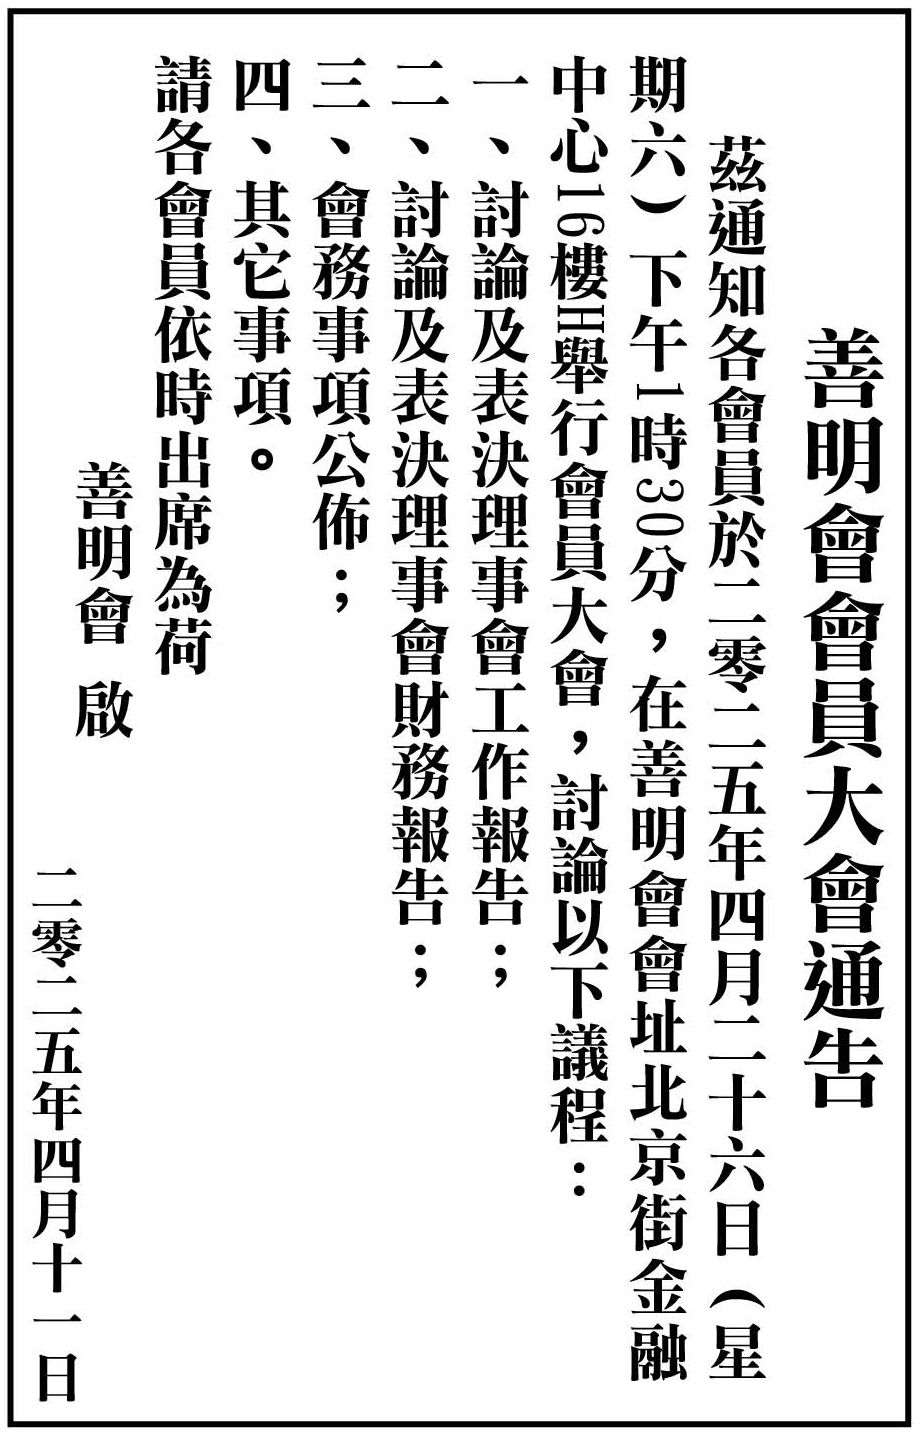 善明會會員大會通告
茲通知各會員於二零二五年四月二十六日（星
期六）下午1時30分，在善明會會址北京街金融
中心16樓H舉行會員大會，討論以下議程：
一、討論及表決理事會工作報告；
二、討論及表決理事會財務報告；
三、會務事項公佈；
四、其它事項。
請各會員依時出席為荷
善明會 啟
二零二五年四月十一日